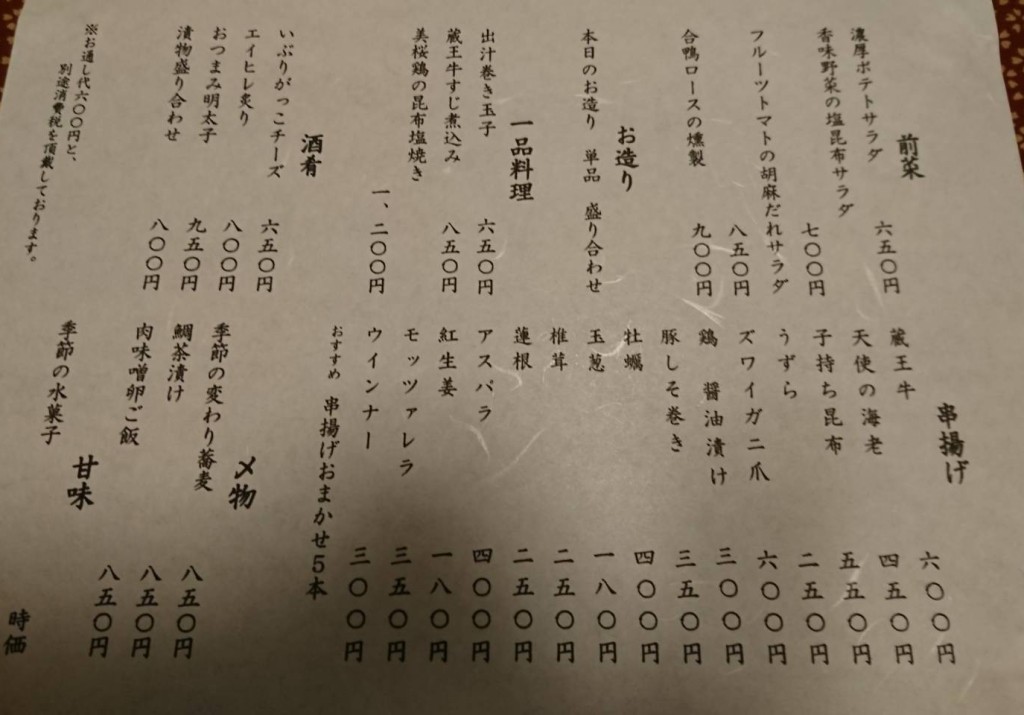 前菜
濃厚ポテトサラダ 六五〇円
香味野菜の塩昆布サラダ 七〇〇円
フルーツトマトの胡麻だれサラダ 八五〇円
合鴨ロースの燻製 九〇〇円
お造り
本日のお造り 単品 盛り合わせ
一品料理
出汁巻き玉子 六五〇円
蔵王牛すじ煮込み 八五〇円
美桜鶏の昆布塩焼き 一、二〇〇円
酒肴
いぶりがっこチーズ 六五〇円
エイヒレ炙り 八〇〇円
おつまみ明太子 九五〇円
漬物盛り合わせ 八〇〇円
※お通し代六〇〇円と、
別途消費税を頂戴しております。
串揚げ
蔵王牛 六〇〇円
天使の海老 四五〇円
子持ち昆布 五五〇円
うずら 二五〇円
ズワイガニ爪 六〇〇円
鶏 醤油漬け 三〇〇円
豚しそ巻き 三五〇円
牡蠣 四〇〇円
玉葱 一八〇円
椎茸 二五〇円
蓮根 二五〇円
アスパラ 四〇〇円
紅生姜 一八〇円
モッツァレラ 三五〇円
ウインナー 三〇〇円
おすすめ 串揚げおまかせ5本
〆物
季節の変わり蕎麦 八五〇円
鯛茶漬け 八五〇円
肉味噌卵ご飯 八五〇円
甘味
季節の水菓子 時価